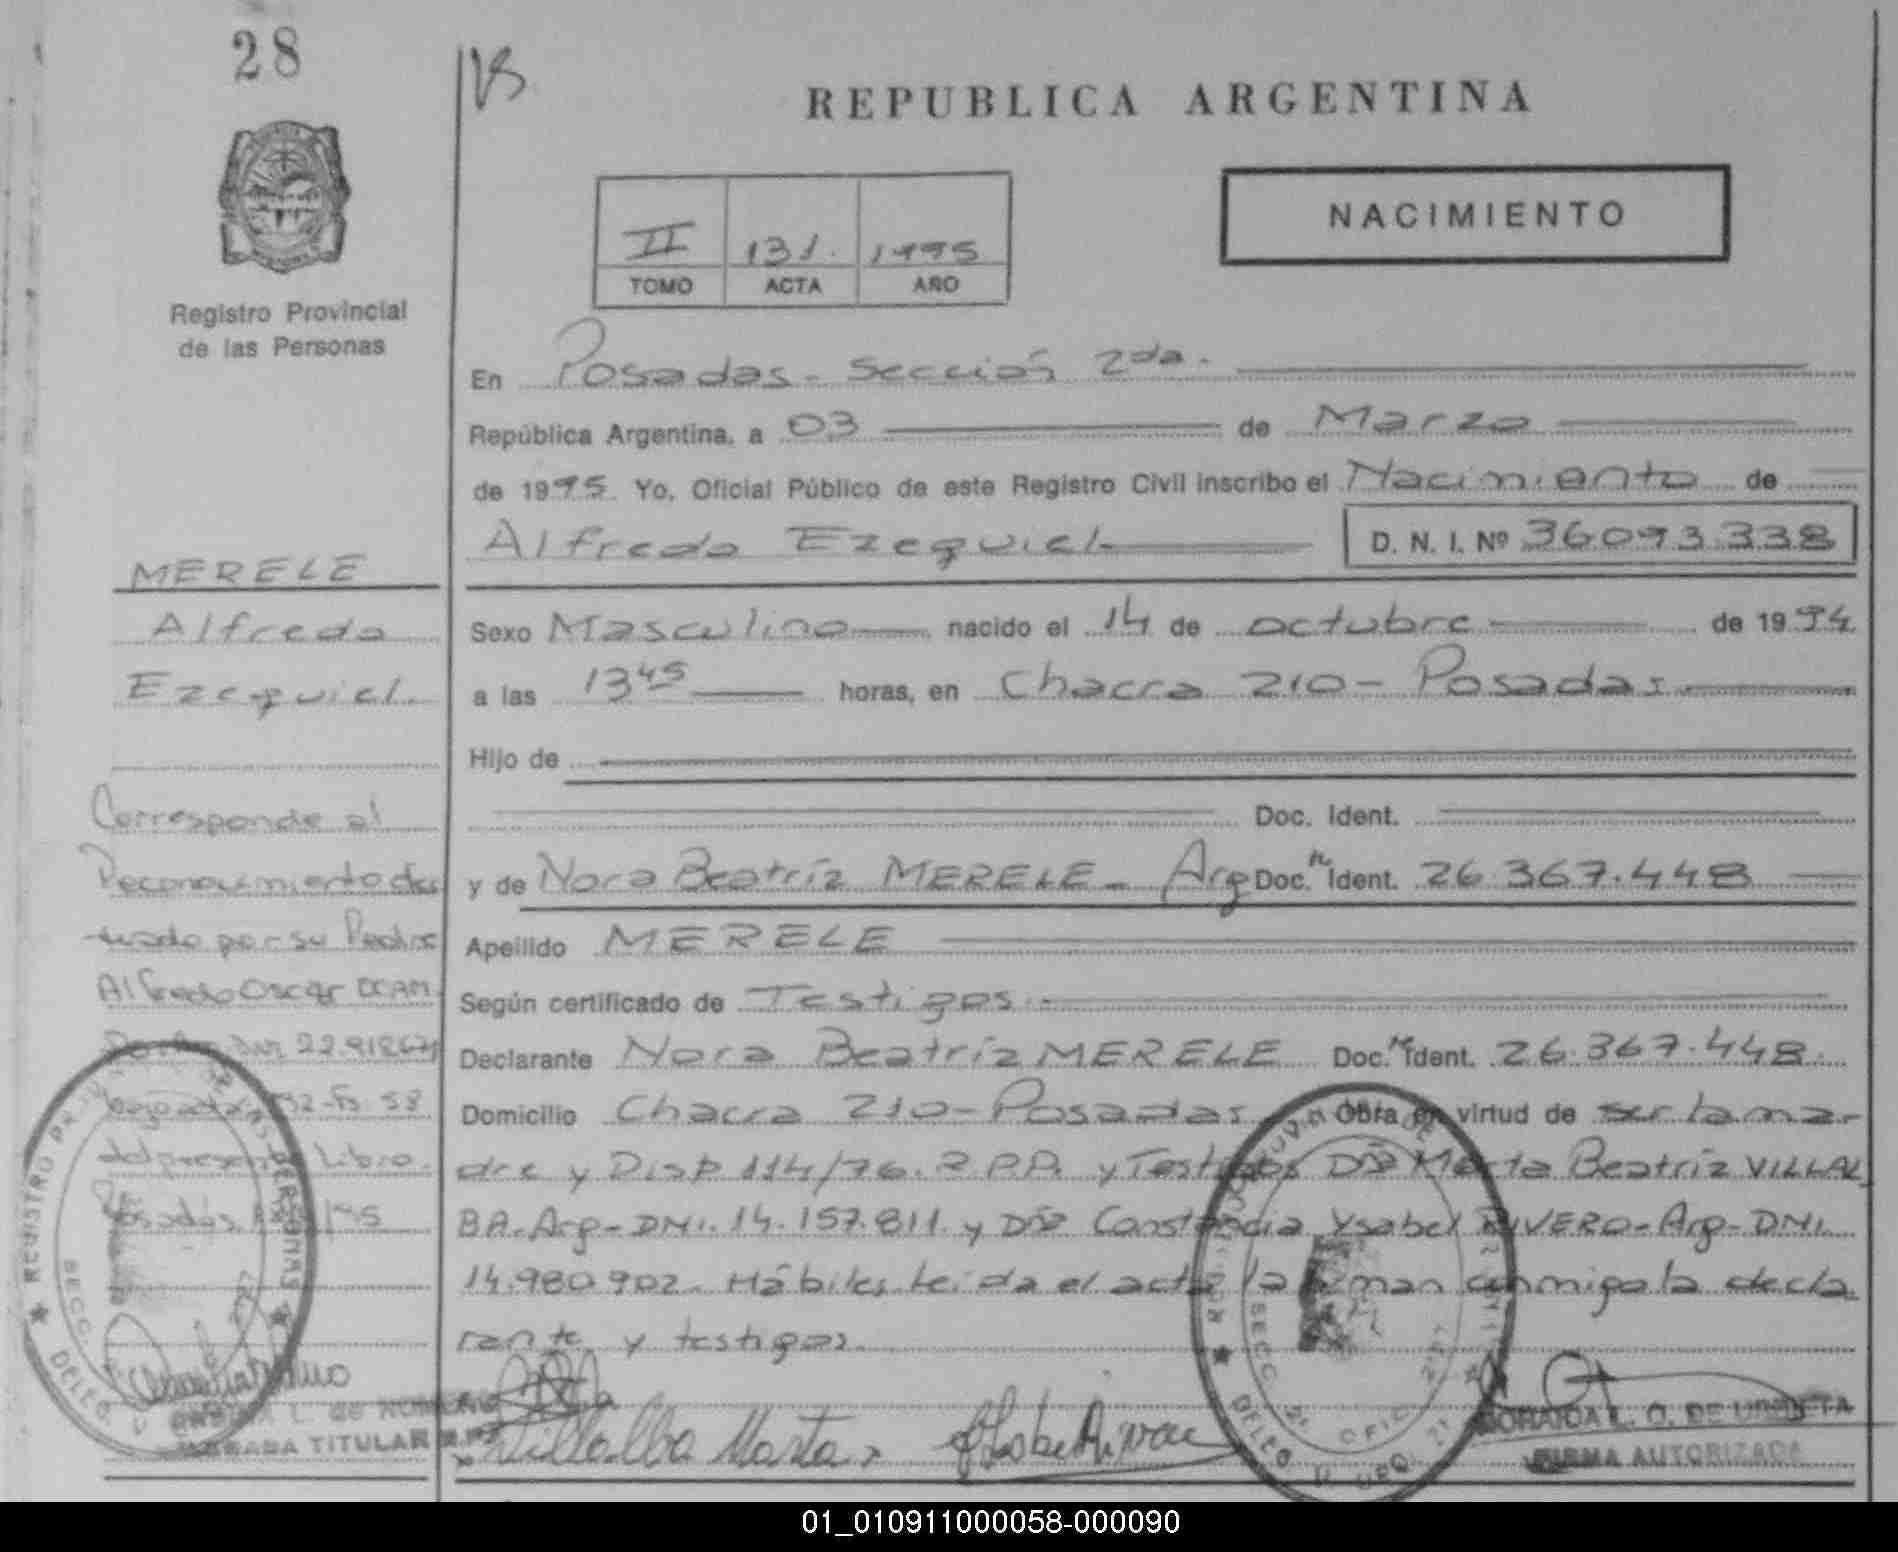 28
Registro Provincial
de las Personas
MERELE
Alfredo
Ezequiel
Corresponde al
Reconocimiento efec
tuado por su Padre
Alfredo Oscar
22.918
del presente Libro.
Posadas
REPUBLICA ARGENTINA
NACIMIENTO
II 131. 1995
TOMO ACTA AÑO
En Posadas - Sección 2da.
República Argentina, a 03 de Marzo
de 1995. Yo, Oficial Público de este Registro Civil inscribo el Nacimiento de
Alfredo Ezequiel D. N. I. Nº 36093.338
Sexo Masculino nacido el 14 de octubre de 1994.
a las 13 45 horas, en Chacra 210 - Posadas
Hijo de
Doc. Ident.
y de Nora Beatríz MERELE - Arg Doc. Ident. 26.367.448
Apellido MERELE
Según certificado de Testigos.-
Declarante Nora Beatríz MERELE Doc. Ident. 26.367.448.
Domicilio Chacra 210 - Posadas Obra en virtud de ser la ma-
dre y Disp. 114/76. R.P.P. y Testigos Dña Marta Beatríz VILLAL
BA - Arg - DNI. 14.157.811. y Dña Constancia Ysabel RIVERO - Arg - DNI.
14.980.902. Hábiles leida el acta la firman conmigo la decla
rante y testigos.
Villalba Marta
REGISTRO PROVINCIAL DE LAS PERSONAS
TITULAR
FIRMA AUTORIZADA
01_010911000058-000090